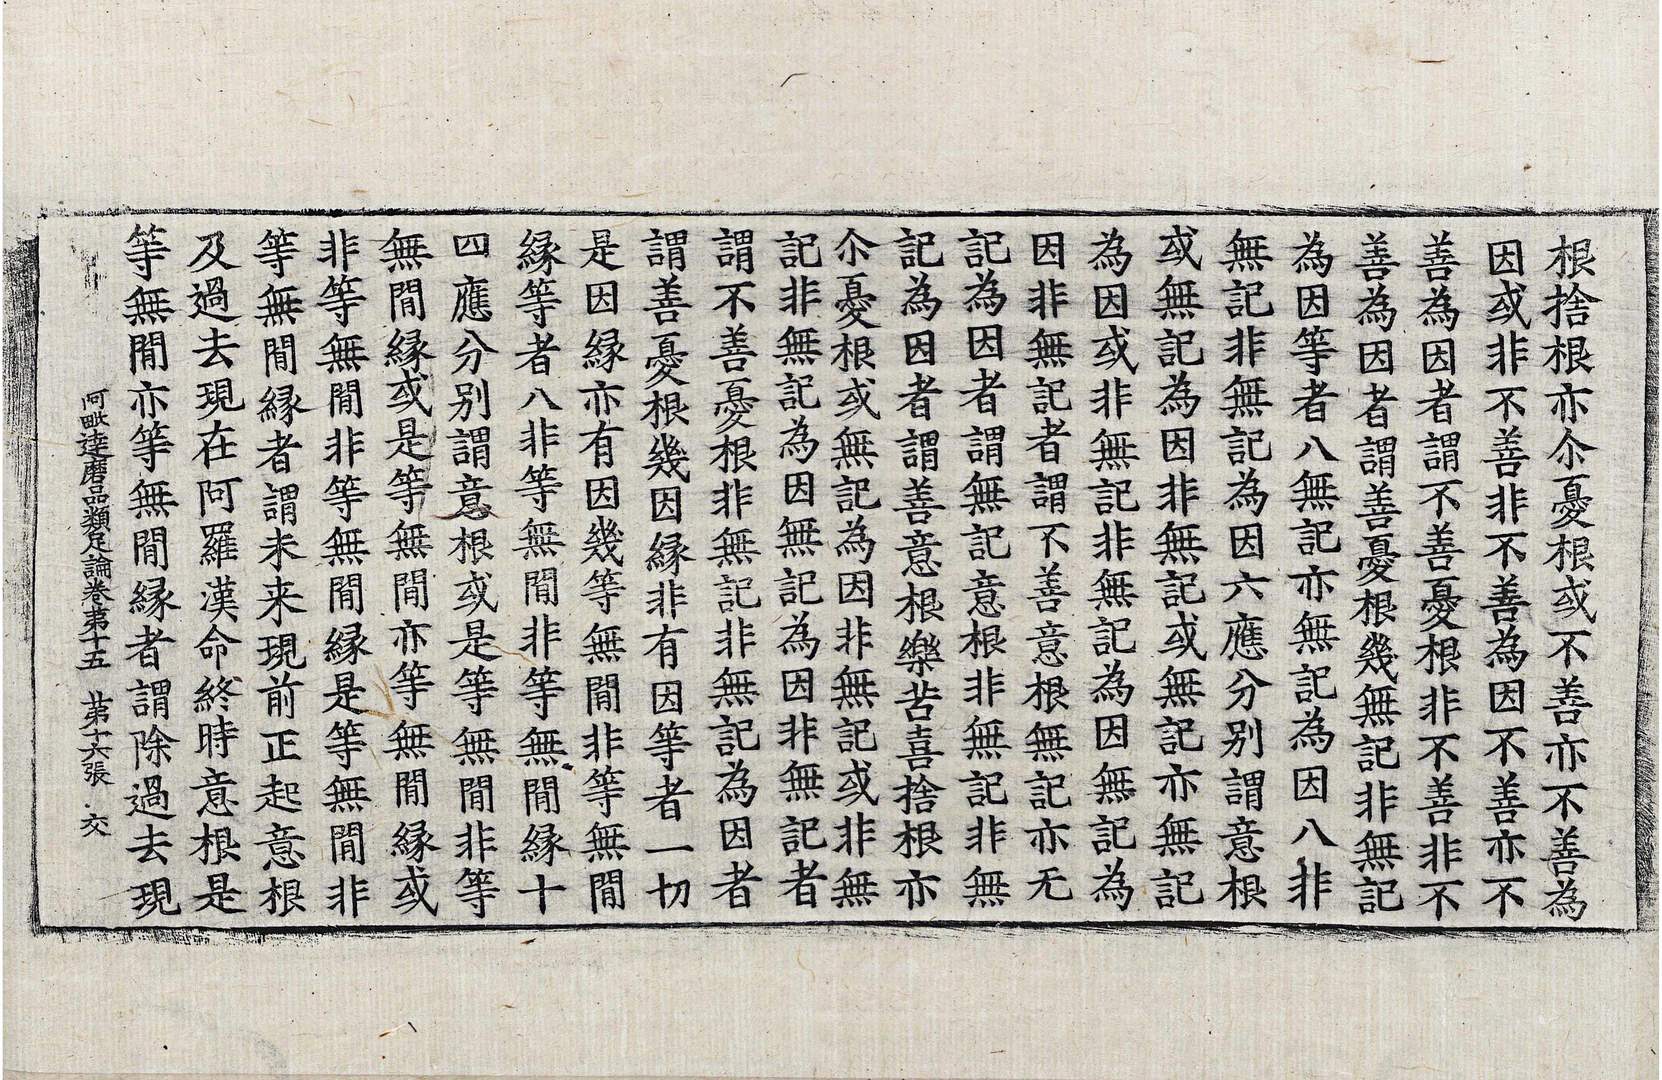 根捨根亦尒憂根或不善亦不善為
因或非不善非不善為因不善亦不
善為因者謂不善憂根非不善非不
善為因者謂善憂根幾無記非無記
為因等者八無記亦無記為因八非
無記非無記為因六應分別謂意根
或無記為因非無記或無記亦無記
為因或非無記非無記為因無記為
因非無記者謂不善意根無記亦无
記為因者謂無記意根非無記非無
記為因者謂善意根樂苦喜捨根亦
尒憂根或無記為因非無記或非無
記非無記為因無記為因非無記者
謂不善憂根非無記非無記為因者
謂善憂根幾因緣非有因等者一切
是因緣亦有因幾等無閒非等無閒
緣等者八非等無閒非等無閒緣十
四應分別謂意根或是等無閒非等
無閒緣或是等無閒亦等無閒緣或
非等無閒非等無閒緣是等無閒非
等無閒緣者謂未来現前正起意根
及過去現在阿羅漢命終時意根是
等無閒亦等無閒緣者謂除過去現
阿毗達磨品類足論卷第十五 第十六張 交